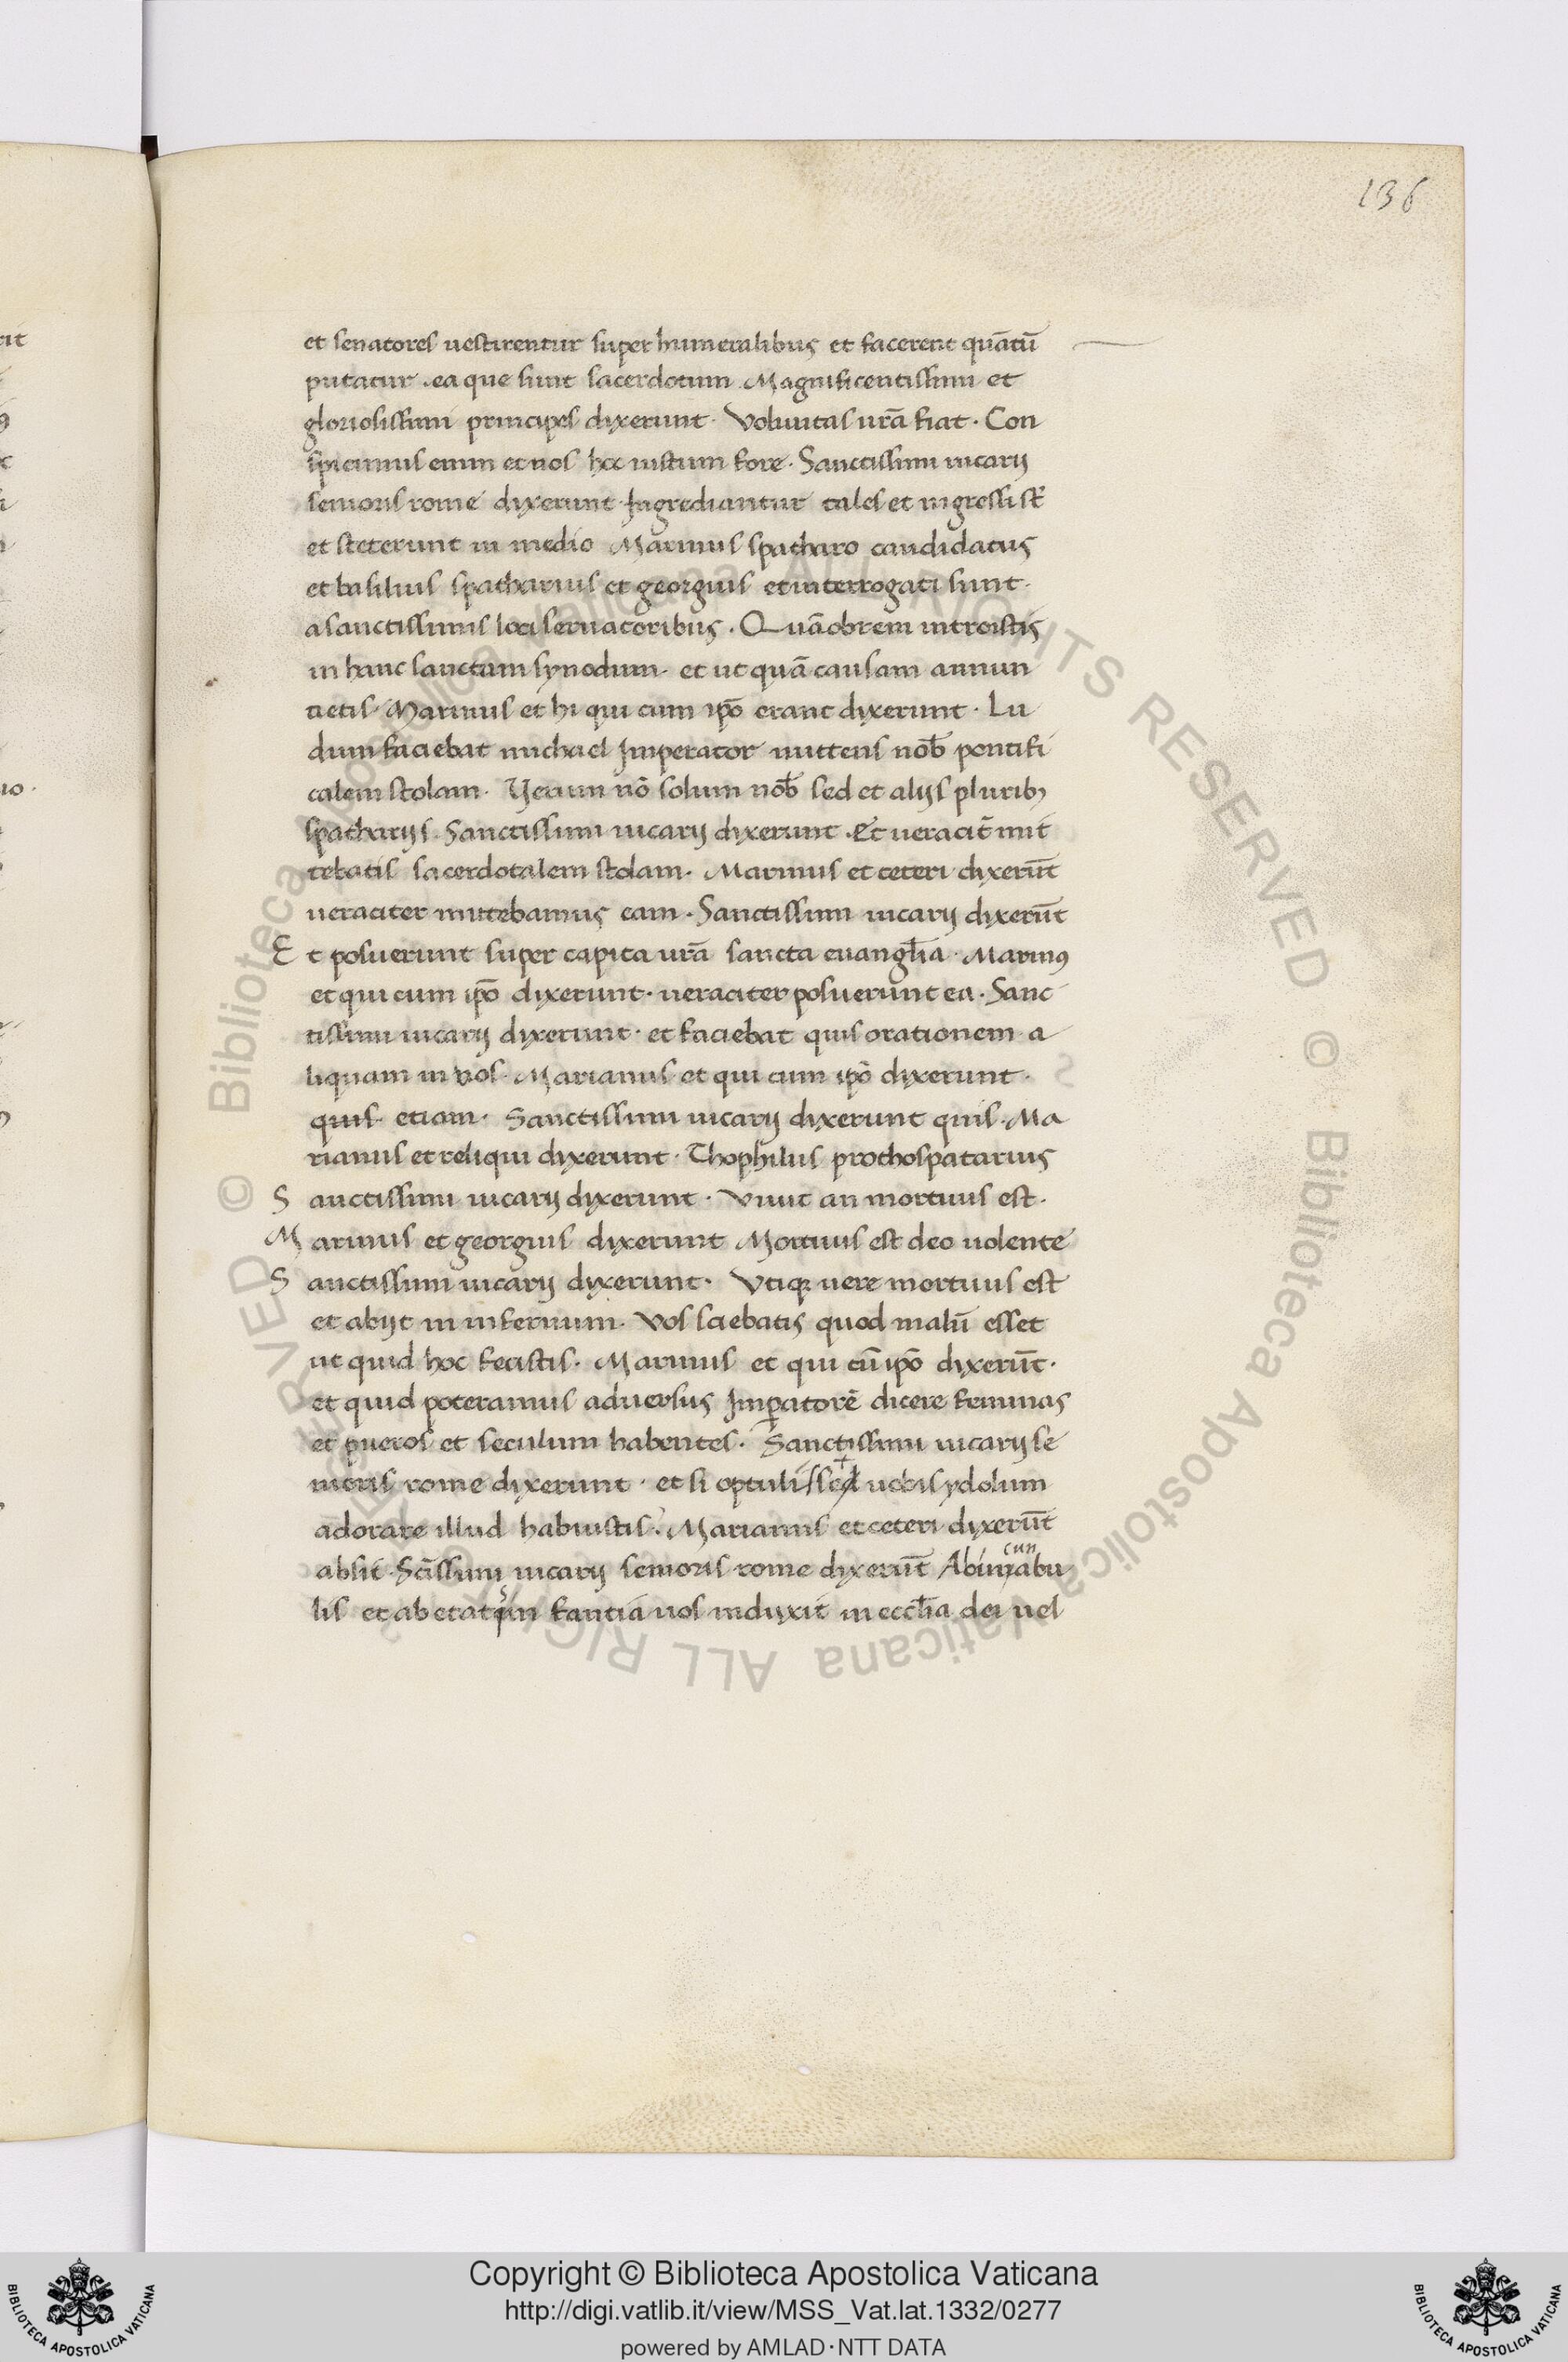 136
et senatores uestirentur super humeralibus et facerent quātū
putatur. ea que sunt sacerdotum. Magnificentissimi et
gloriosissimi principes dixerunt. Voluntas urā fiat. Con
spicimus enim et nos hoc iustum fore. Sanctissimi uicarij
senioris rome dixerunt. Ingrediantur tales et ingressi st̄
et steterunt in medio Marinus spatharo candidatus
et basilius spatharius et georgius et interrogati sunt.
a sanctissimis loci seruatoribus. Quāobrem introistis
in hanc sanctam synodum. et ut quā causam annun
tietis. Marinus et hi qui cum ip̄o erant dixerunt. Lu
dum faciebat michael Imperator mittens nob̄ pontifi
calem stolam. Verum nō solum nob̄ sed et alijs plurib;
spatharijs. Sanctissimi uicarij dixerunt. Et ueracit̄ mit
tebatis sacerdotalem stolam. Marinus et ceteri dixerūt
ueraciter mittebamus eam. Sanctissimi uicarij dixerūt
Et posuerunt super capita urā sancta euangl̄ia. Marinꝰ
et qui cum ip̄o dixerunt. ueraciter posuerunt ea. Sanc
tissimi uicarij dixerunt. et faciebat quis orationem a
liquam in uos. Marianus et qui cum ip̄o dixerunt.
quis etiam. Sanctissimi uicarij dixerunt quis. Ma
rianus et reliqui dixerunt. Thophilus prothospatarius
Sanctissimi uicarij dixerunt. Viuit an mortuus est.
Marinus et georgius dixerunt Mortuus est deo uolente
Sanctissimi uicarij dixerunt. Vtiqꝫ uere mortuus est
et abijt in infernum. Vos sciebatis quod malū esset
ut quid hoc fecistis. Marinus et qui cū ip̄o dixerūt.
et quid poteramus aduersus Imꝑatorē dicere feminas
et pueros et seculum habentes. Sanctissimi uicarij se
nioris rome dixerunt. et si optulisset uobis ydolum
adorare illud habuistis. Marianus et ceteri dixerūt
absit. Sc̄issimi uicarij senioris rome dixerūt Ab incunabu
lis et ab etate quis in fantia uos induxit in eccl̄ia dei uel
Copyright © Biblioteca Apostolica Vaticana
http://digi.vatlib.it/view/MSS_Vat.lat.1332/0277
powered by AMLAD·NTT DATA